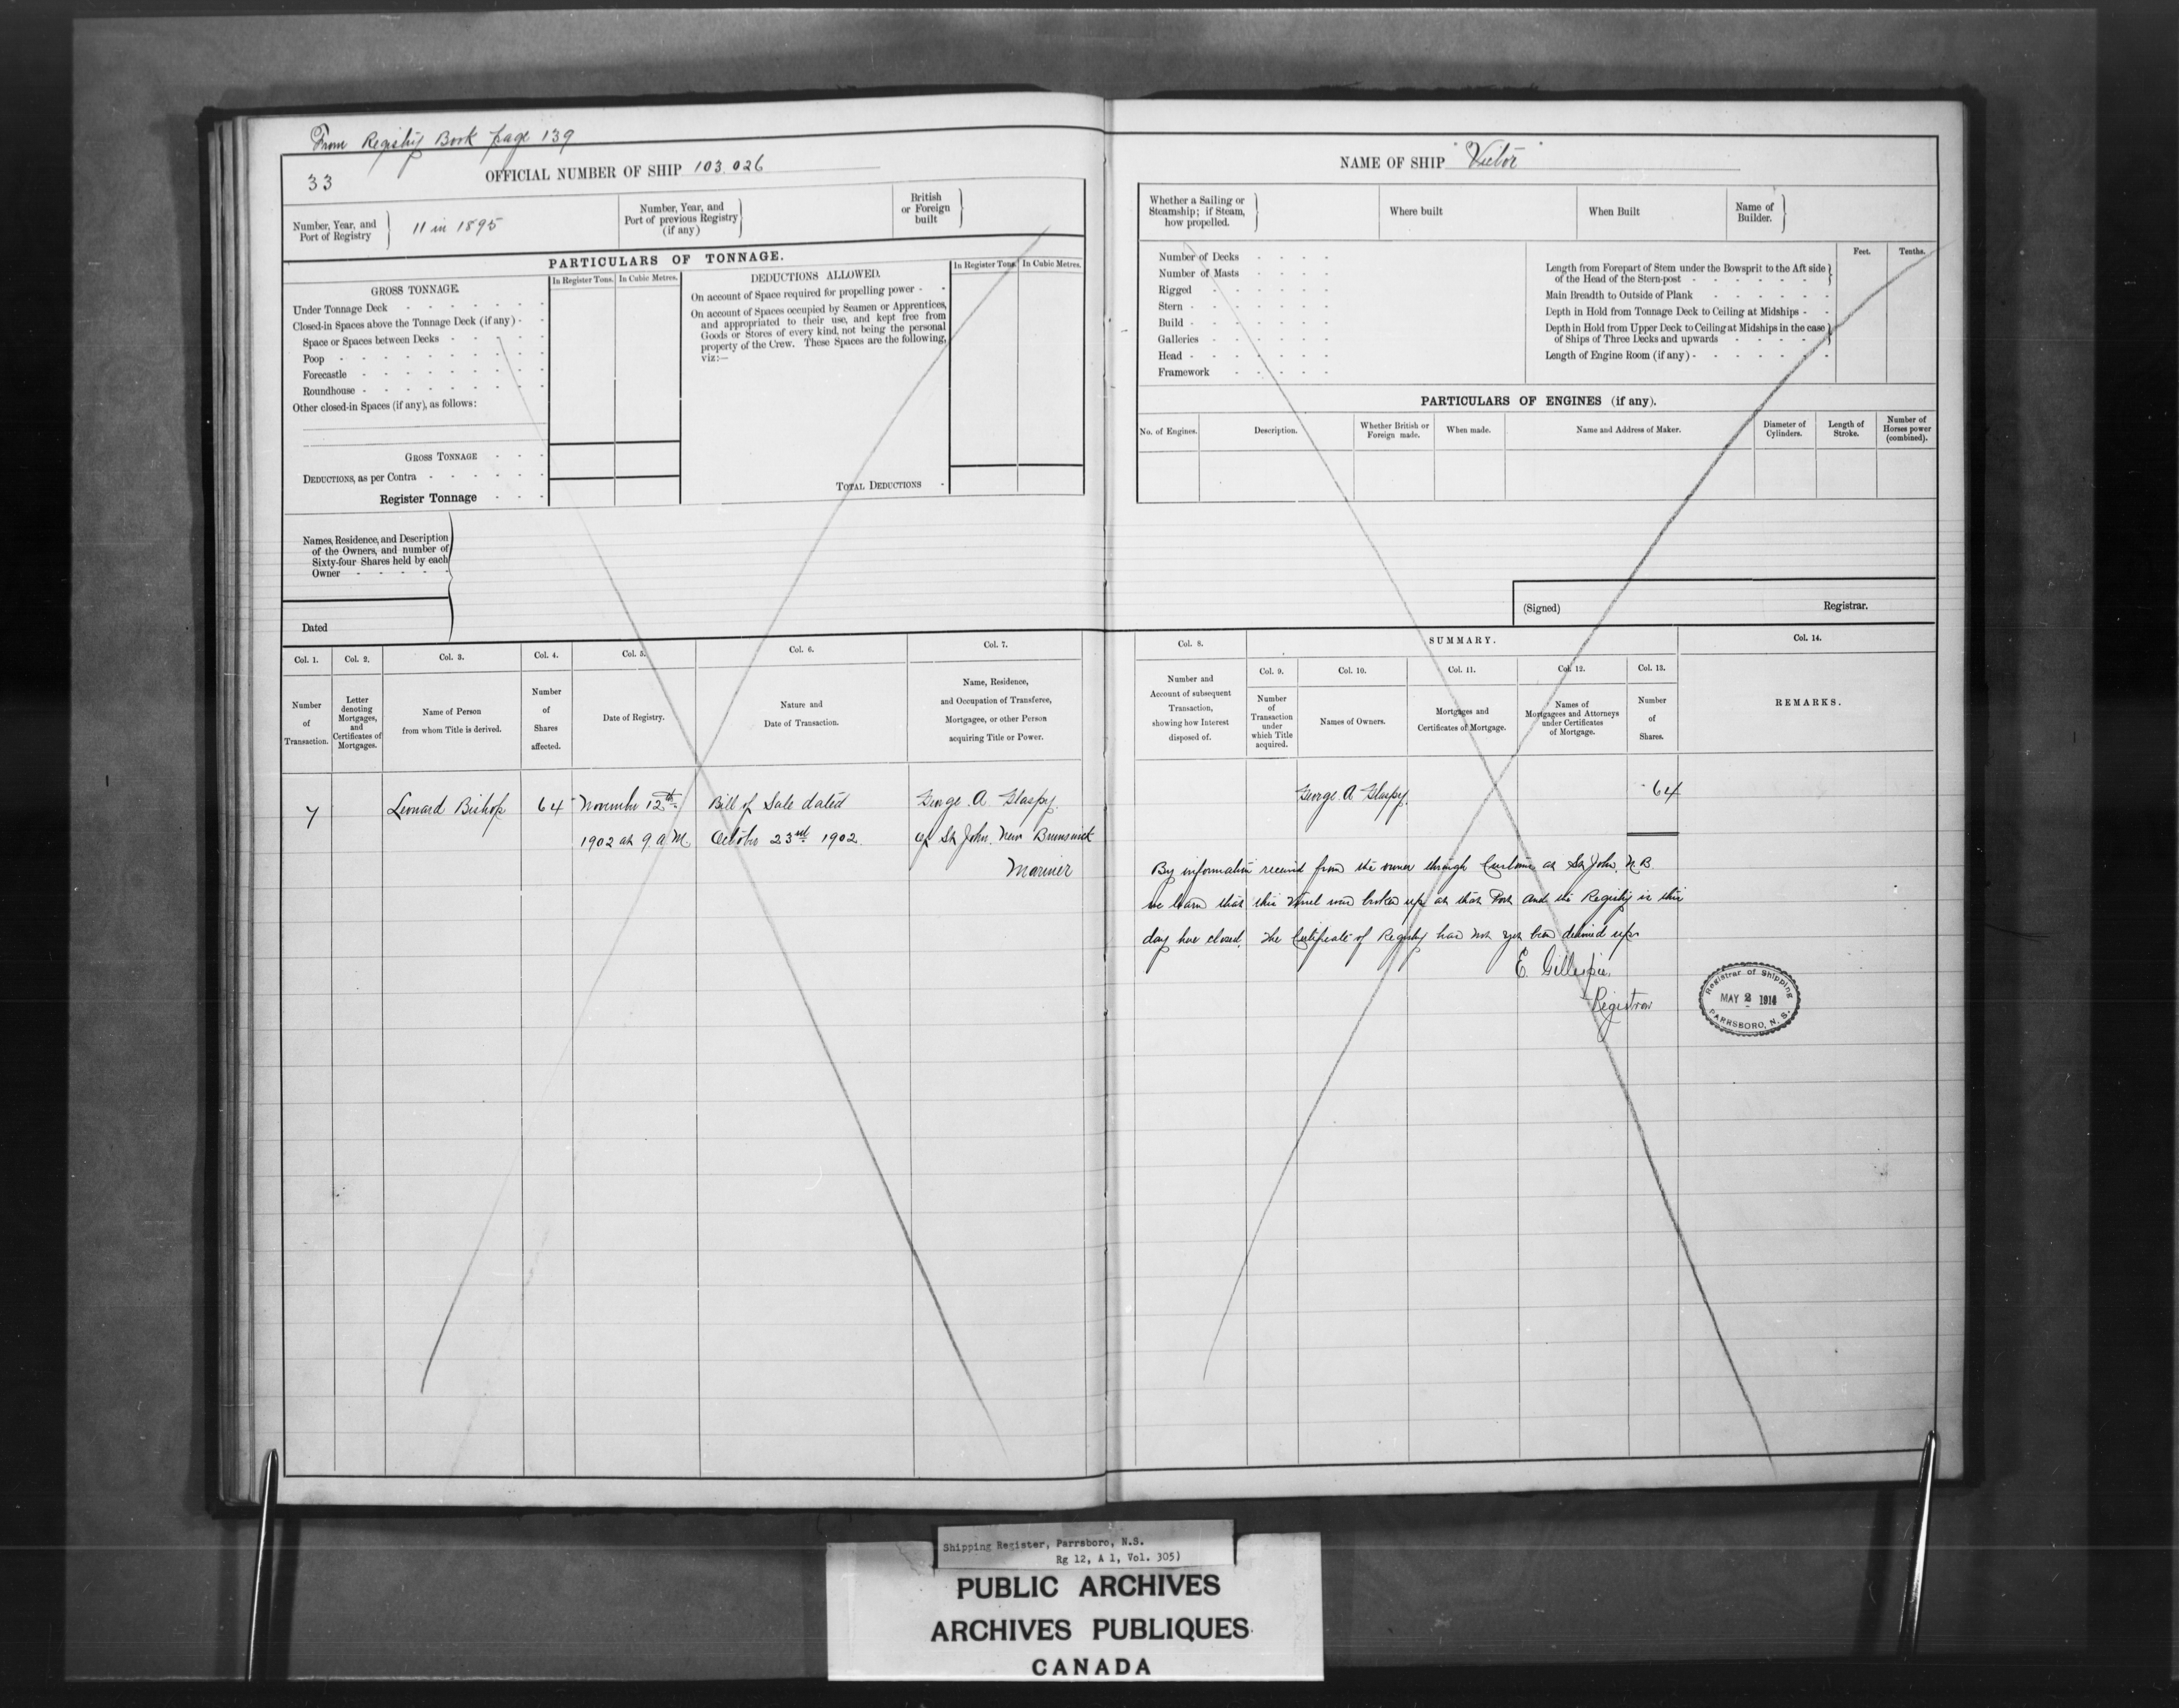 From Registry Book page 139
33
OFFICIAL NUMBER OF SHIP 103.026
Number, Year, and
Port of Registry
11 in 1895
Number, Year, and
Port of previous Registry
(if any)
British
or Foreign
built
PARTICULARS OF TONNAGE.
GROSS TONNAGE.
In Register Tons.
In Cubic Metres.
Under Tonnage Deck
Closed-in Spaces above the Tonnage Deck (if any)
Space or Spaces between Decks
Poop
Forecastle
Roundhouse
Other closed-in Spaces (if any), as follows:
GROSS TONNAGE
DEDUCTIONS, as per Contra
Register Tonnage
DEDUCTIONS ALLOWED.
In Register Tons.
In Cubic Metres.
On account of Space required for propelling power
On account of Spaces occupied by Seamen or Apprentices,
and appropriated to their use, and kept free from
Goods or Stores of every kind, not being the personal
property of the Crew. These Spaces are the following,
viz:—
TOTAL DEDUCTIONS
Names, Residence, and Description
of the Owners, and number of
Sixty-four Shares held by each
Owner
Dated
Col. 1.
Number
of
Transaction.
Col. 2.
Letter
denoting
Mortgages,
and
Certificates of
Mortgages.
Col. 3.
Name of Person
from whom Title is derived.
Col. 4.
Number
of
Shares
affected.
Col. 5.
Date of Registry.
Col. 6.
Nature and
Date of Transaction.
Col. 7.
Name, Residence,
and Occupation of Transferee,
Mortgagee, or other Person
acquiring Title or Power.
7
Leonard Bishop
64
November 12th
1902 at 9 a.M.
Bill of Sale dated
October 23rd 1902.
George A Glaspy.
of St John. New Brunswick
Mariner
NAME OF SHIP "Victor"
Whether a Sailing or
Steamship; if Steam,
how propelled.
Where built
When Built
Name of
Builder.
Number of Decks
Number of Masts
Rigged
Stern
Build
Galleries
Head
Framework
Feet.
Tenths.
Length from Forepart of Stem under the Bowsprit to the Aft side
of the Head of the Stern-post
Main Breadth to Outside of Plank
Depth in Hold from Tonnage Deck to Ceiling at Midships
Depth in Hold from Upper Deck to Ceiling at Midships in the case
of Ships of Three Decks and upwards
Length of Engine Room (if any)
PARTICULARS OF ENGINES (if any).
No. of Engines.
Description.
Whether British or
Foreign made.
When made.
Name and Address of Maker.
Diameter of
Cylinders.
Length of
Stroke.
Number of
Horses power
(combined).
(Signed)
Registrar.
Col. 8.
Number and
Account of subsequent
Transaction,
showing how Interest
disposed of.
SUMMARY.
Col. 9.
Number
of
Transaction
under
which Title
acquired.
Col. 10.
Names of Owners.
Col. 11.
Mortgages and
Certificates of Mortgage.
Col. 12.
Names of
Mortgagees and Attorneys
under Certificates
of Mortgage.
Col. 13.
Number
of
Shares.
Col. 14.
REMARKS.
George A Glaspy.
64
By information received from the owner through Customs at St John, N.B.
we learn that this Vessel was broken up at that Port and the Registry is this
day here closed. The Certificate of Registry has not yet been delivered up.
E. Gillespie.
Registrar
Registrar of Shipping
MAY 2 1914
PARRSBORO, N. S.
Shipping Register, Parrsboro, N.S.
Rg 12, A 1, Vol. 305)
PUBLIC ARCHIVES
ARCHIVES PUBLIQUES
CANADA